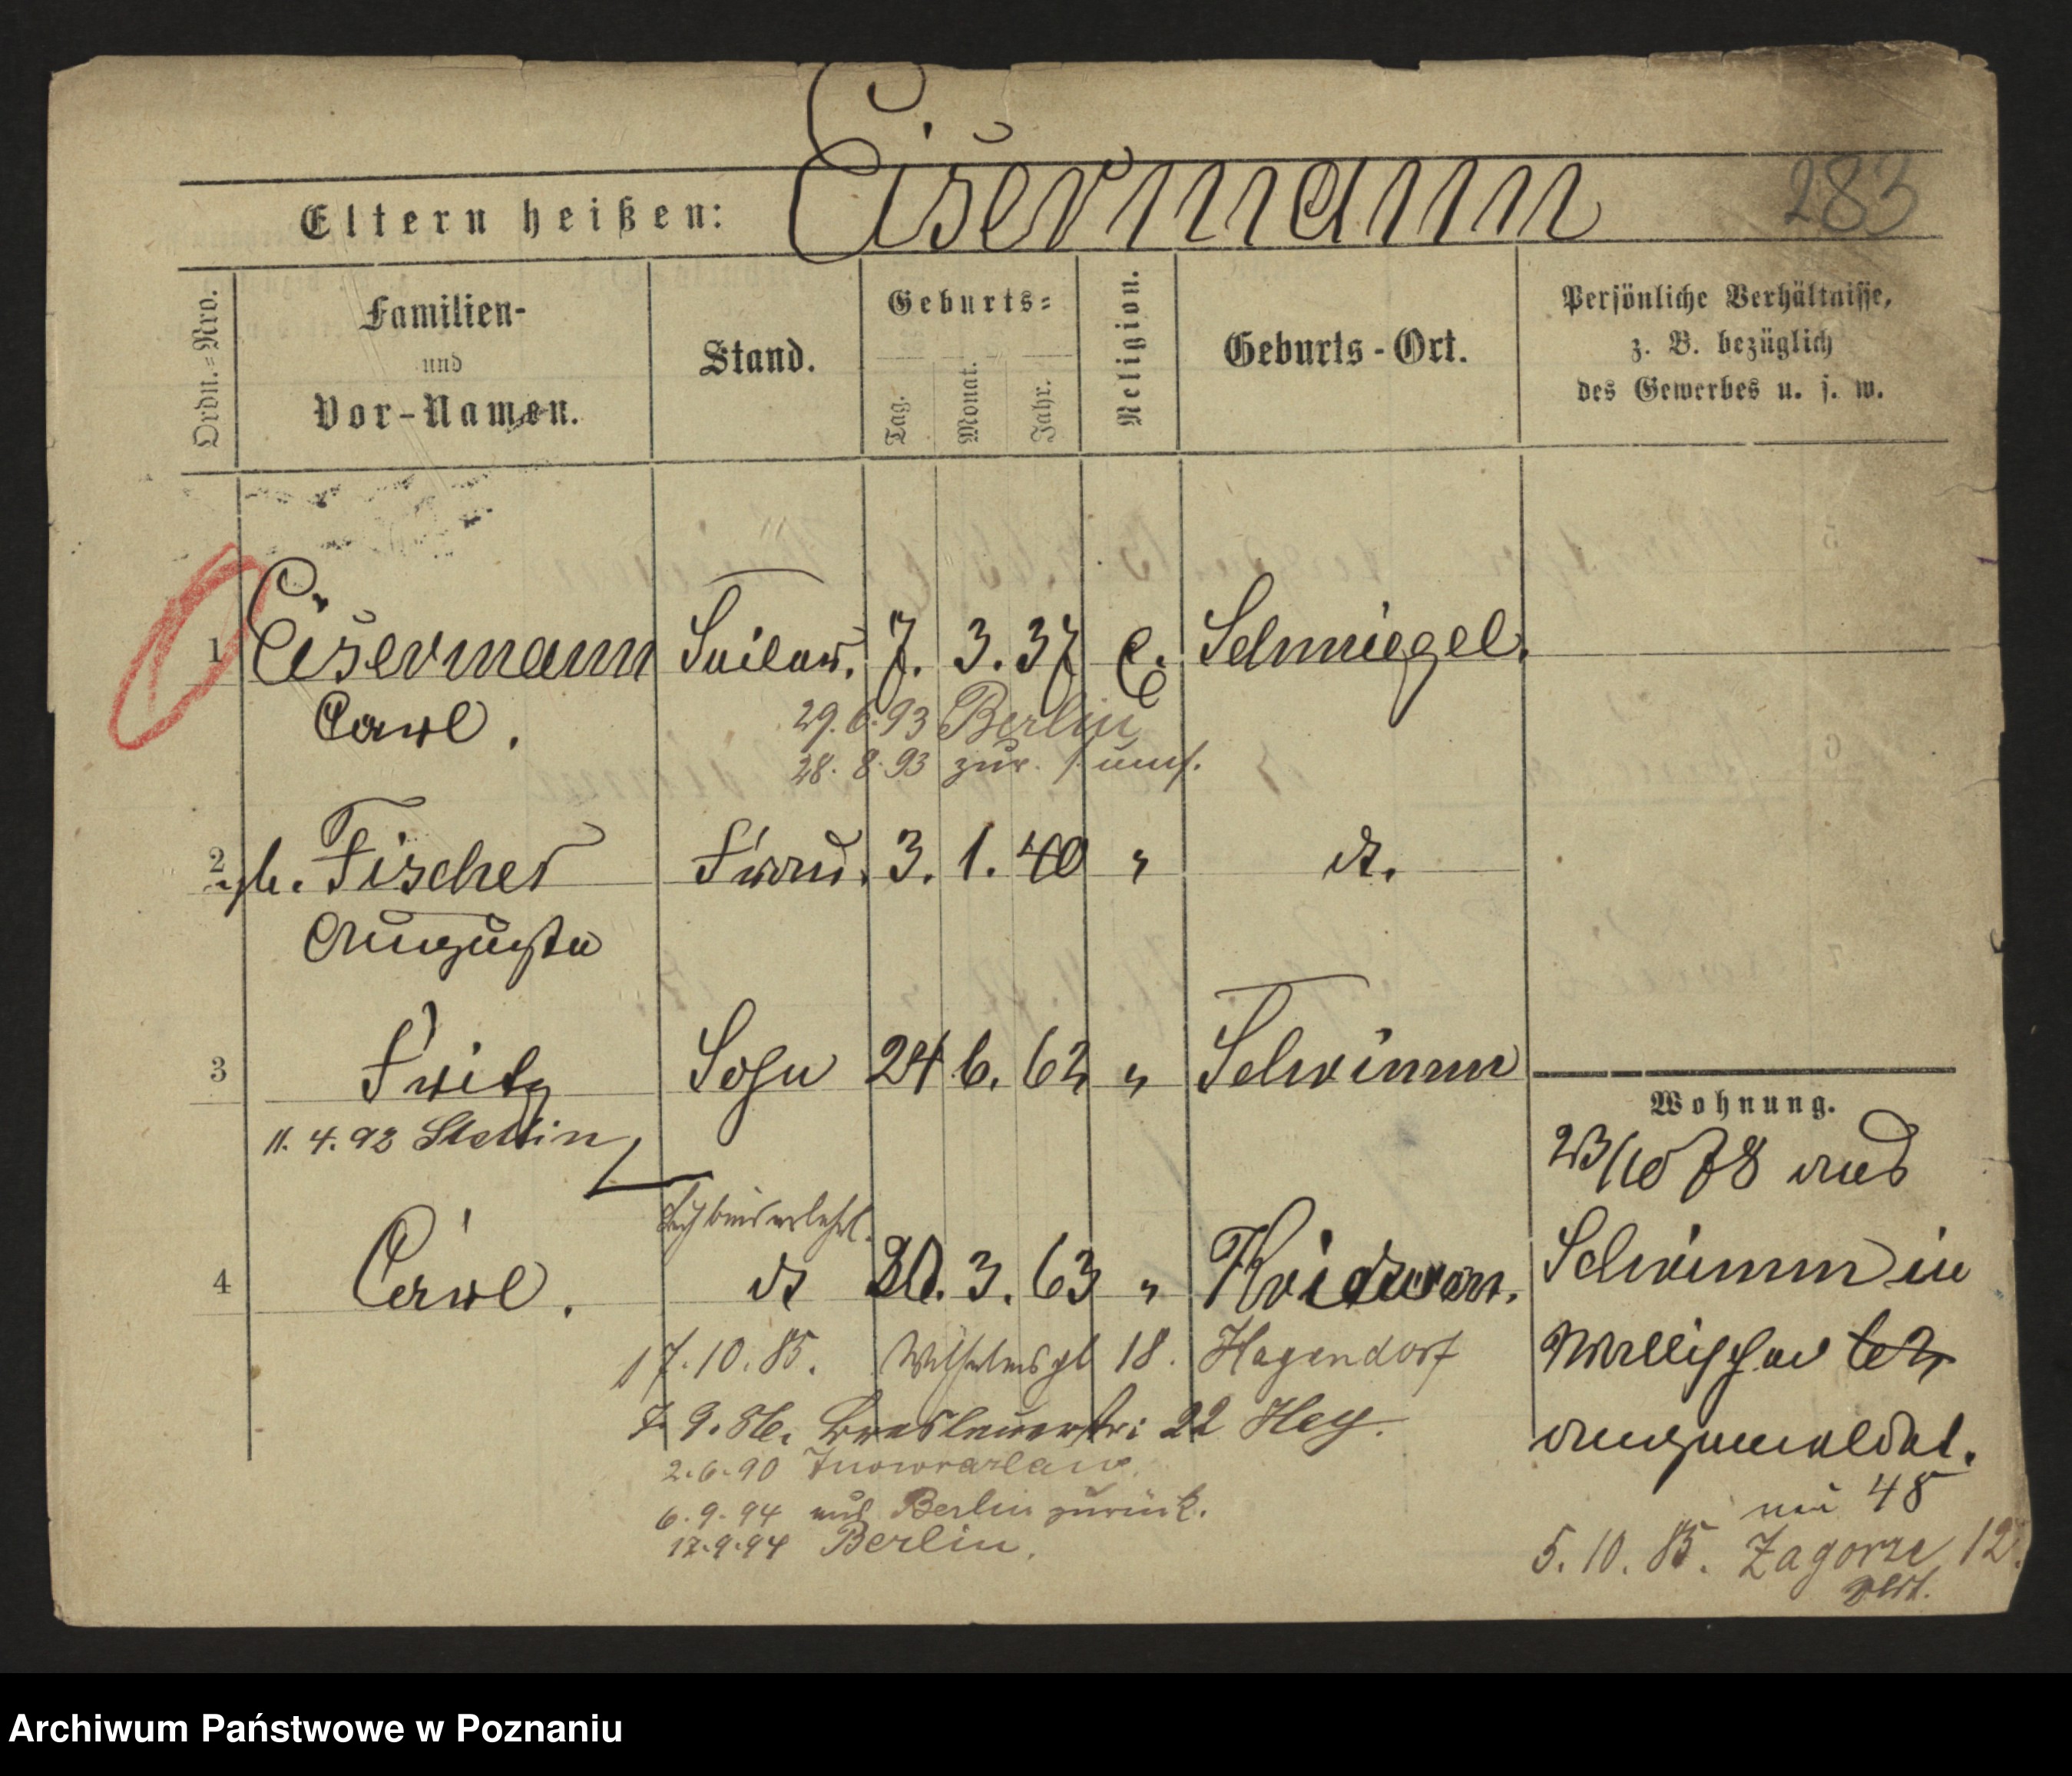 Eisermann
283
Eltern heißen:
Ordn.=Nro.
Familien-
und
Vor-Namen.
Stand.
Geburts=
Tag.
Monat.
Jahr.
Religion.
Geburts-Ort.
Persönliche Verhältnisse,
z. B. bezüglich
des Gewerbes u. s. w.
1 Eisermann Seilerm. 7. 3. 37 E. Schmiegel.
Carl.
29.6.93 Berlin
28.8.93 zur.
2 gb. Fischer Frau. 3. 1. 40 " do.
Auguste
3 Fritz Sohn 24 6. 62 " Schrimm
11.4.92 Stettin
4 Carl. do 20. 3. 63 "
17.10.85. Wilhelmspl 18. Hagendorf
7.9.86. Breslauerstr: 22 Hey.
2.6.90 Inowrazlaw.
6.9.94 aus Berlin zurück.
17.9.94 Berlin.
Wohnung.
23/10 78 aus
Schrimm in
Wallischei 62
angemeldet.
48
5.10.85. Zagorze 12.
Archiwum Państwowe w Poznaniu